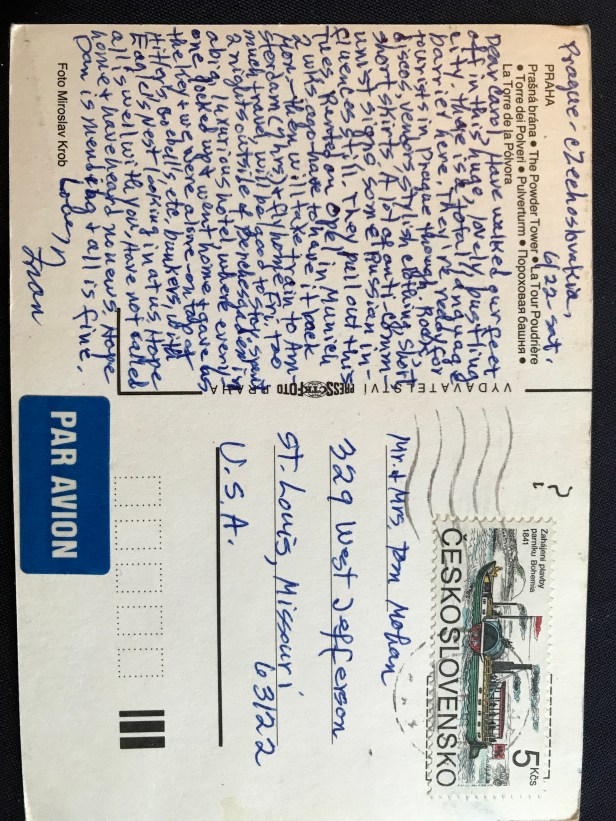 Prague-Czechoslovakia,
6/22 sat.
PRAHA
Prašná brána • The Powder Tower • La Tour Poudrière
• Torre dei Polveri • Pulverturm • Пороховая башня •
La Torre de la Pólvora
Dear Carol, Have walked our feet
off in this huge, lovely, bustling
city. There is a total language
barrier here. They're ready for
tourists in Prague though, Rock
discos, vendors, stylish clothing, short
short skirts. A lot of anti-comm-
unist signs some Russian in-
fluences still. They pull out this
Tues. Rented an Opel in Munich
2 wks ago have to have it back
Mon. then will take train to Am
sterdam (2 wks), flying Fri. Too
much travel will be good to stay. Spent
2 nights outside of Berchesgaden in
a big, luxurious hotel, where every-
one locked up & went home & gave us
the key & we were alone-on top of
Hitler's bunkers, old
Eagle's Nest looking in at us. Hope
all is well with you, Have not called
home & have heard no news. Hope
Dan is mending & all is fine.
Love,
Fran
Foto Miroslav Krob
VYDAVATELSTVÍ PRESSFOTO PRAHA
Zahájení plavby
parníku Bohemia
1841
ČESKOSLOVENSKO
5 Kčs
Mr. & Mrs. Tom Mohan
329 West Jefferson
St. Louis, Missouri
63122
U.S.A.
PAR AVION